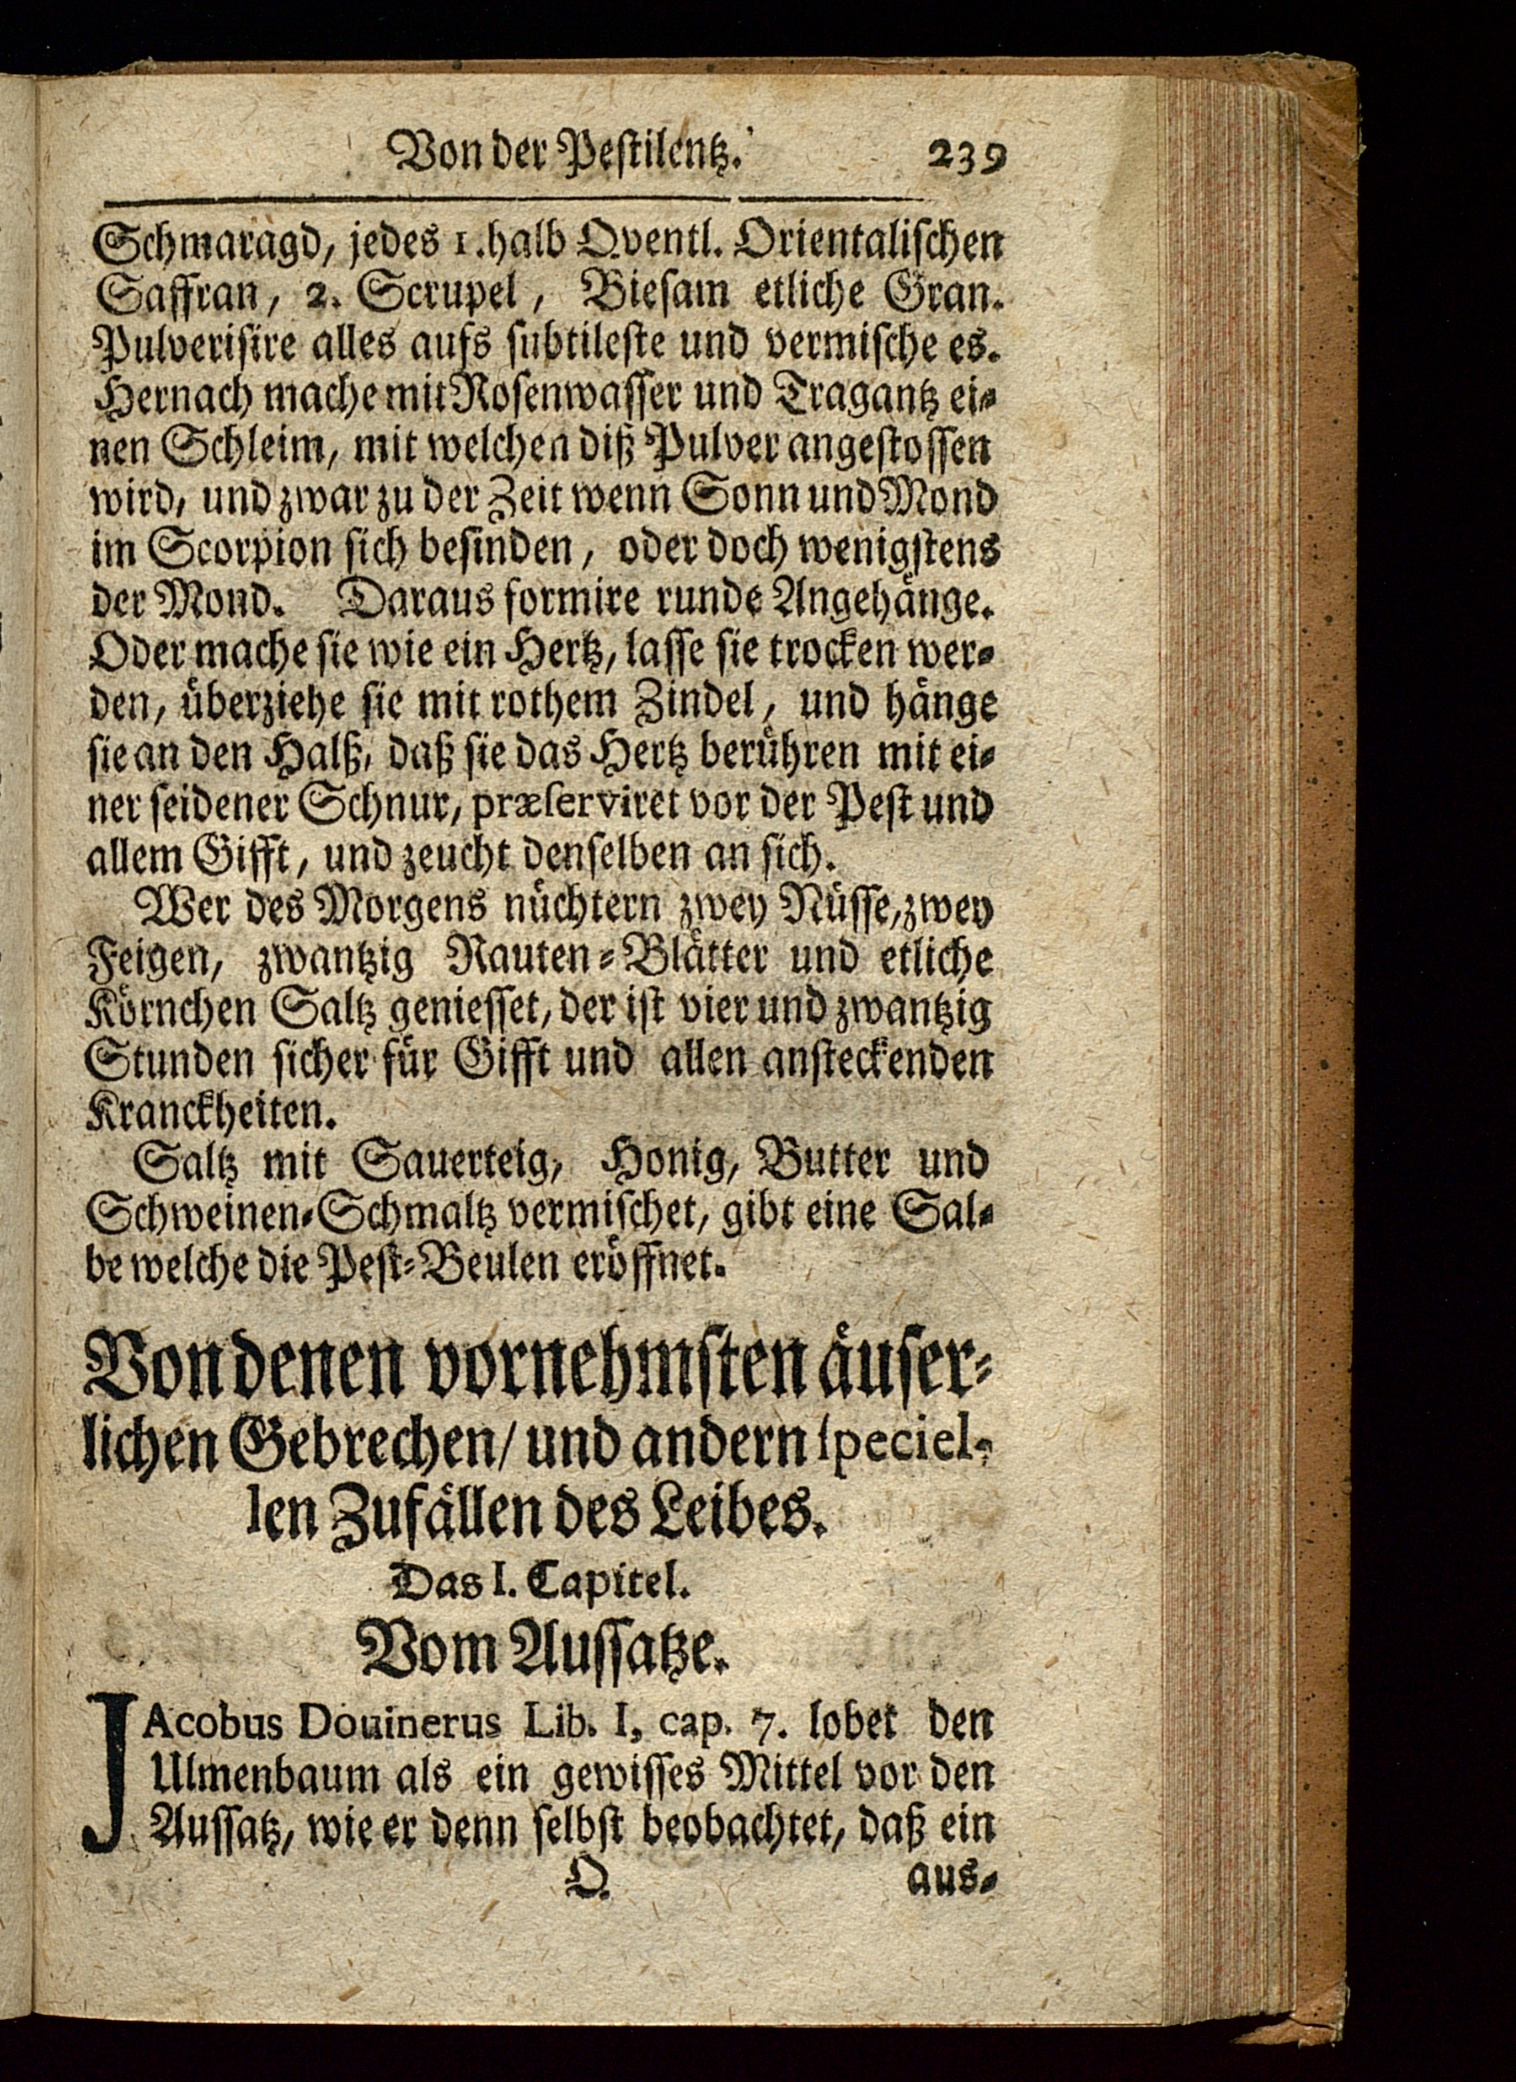 Von der Pestilentz. 239
Schmaragd, jedes 1. halb Qventl. Orientalischen
Saffran, 2. Scrupel, Biesam etliche Gran.
Pulverisire alles aufs subtileste und vermische es.
Hernach mache mit Rosenwasser und Tragantz ei-
nen Schleim, mit welchen diß Pulver angestossen
wird, und zwar zu der Zeit wenn Sonn und Mond
im Scorpion sich befinden, oder doch wenigstens
der Mond. Daraus formire runde Angehänge.
Oder mache sie wie ein Hertz, lasse sie trocken wer-
den, überziehe sie mit rothem Zindel, und hänge
sie an den Halß, daß sie das Hertz berühren mit ei-
ner seidener Schnur, præserviret vor der Pest und
allem Gifft, und zeucht denselben an sich.
Wer des Morgens nüchtern zwey Nüsse, zwey
Feigen, zwantzig Rauten-Blätter und etliche
Körnchen Saltz geniesset, der ist vier und zwantzig
Stunden sicher für Gifft und allen ansteckenden
Kranckheiten.
Saltz mit Sauerteig, Honig, Butter und
Schweinen-Schmaltz vermischet, gibt eine Sal-
be welche die Pest-Beulen eröffnet.
Von denen vornehmsten äuser-
lichen Gebrechen/ und andern speciel-
len Zufällen des Leibes.
Das I. Capitel.
Vom Aussatze.
JAcobus Douinerus Lib. I, cap. 7. lobet den
Ulmenbaum als ein gewisses Mittel vor den
Aussatz, wie er denn selbst beobachtet, daß ein
Q aus-